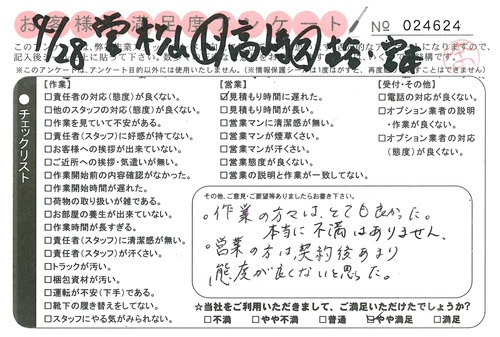 お客様満足度アンケート
№ 024624
9/28
※このアンケートは、アンケート目的以外には使用いたしません。(※情報保護シールは1度はがすと、再度
チェックリスト
【作業】
□責任者の対応(態度)が良くない。
□他のスタッフの対応(態度)が良くない。
□作業を見ていて不安がある。
□責任者(スタッフ)に好感が持てない。
□お客様への挨拶が出来ていない。
□ご近所への挨拶・気遣いが無い。
□作業開始前の内容確認がなかった。
□作業開始時間が遅れた。
□荷物の取り扱いが雑である。
□お部屋の養生が出来ていない。
□作業時間が長すぎる。
□責任者(スタッフ)に清潔感が無い。
□責任者(スタッフ)が汗くさい。
□トラックが汚い。
□梱包資材が汚い。
□運転が不安(下手)である。
□靴下の履き替えをしてない。
□スタッフにやる気がみられない。
【営業】
☑見積もり時間に遅れた。
□見積もり時間が長い。
□営業マンに清潔感が無い。
□営業マンが煙草くさい。
□営業マンが汗くさい。
□営業態度が良くない。
□営業の説明と作業が一致してない。
【受付・その他】
□電話の対応が良くない。
□オプション業者の説明
・作業が良くない。
□オプション業者の対応
(態度)が良くない。
その他、ご意見・ご要望等ありましたらお書き下さい。
。作業の方々は、とても良かった。
本当に不満はありません。
。営業の方は契約後あまり
態度が良くないと思った。
☆当社をご利用いただきまして、ご満足いただけてしょうか?
□不満 □やや不満 □普通 ☑やや満足 □満足